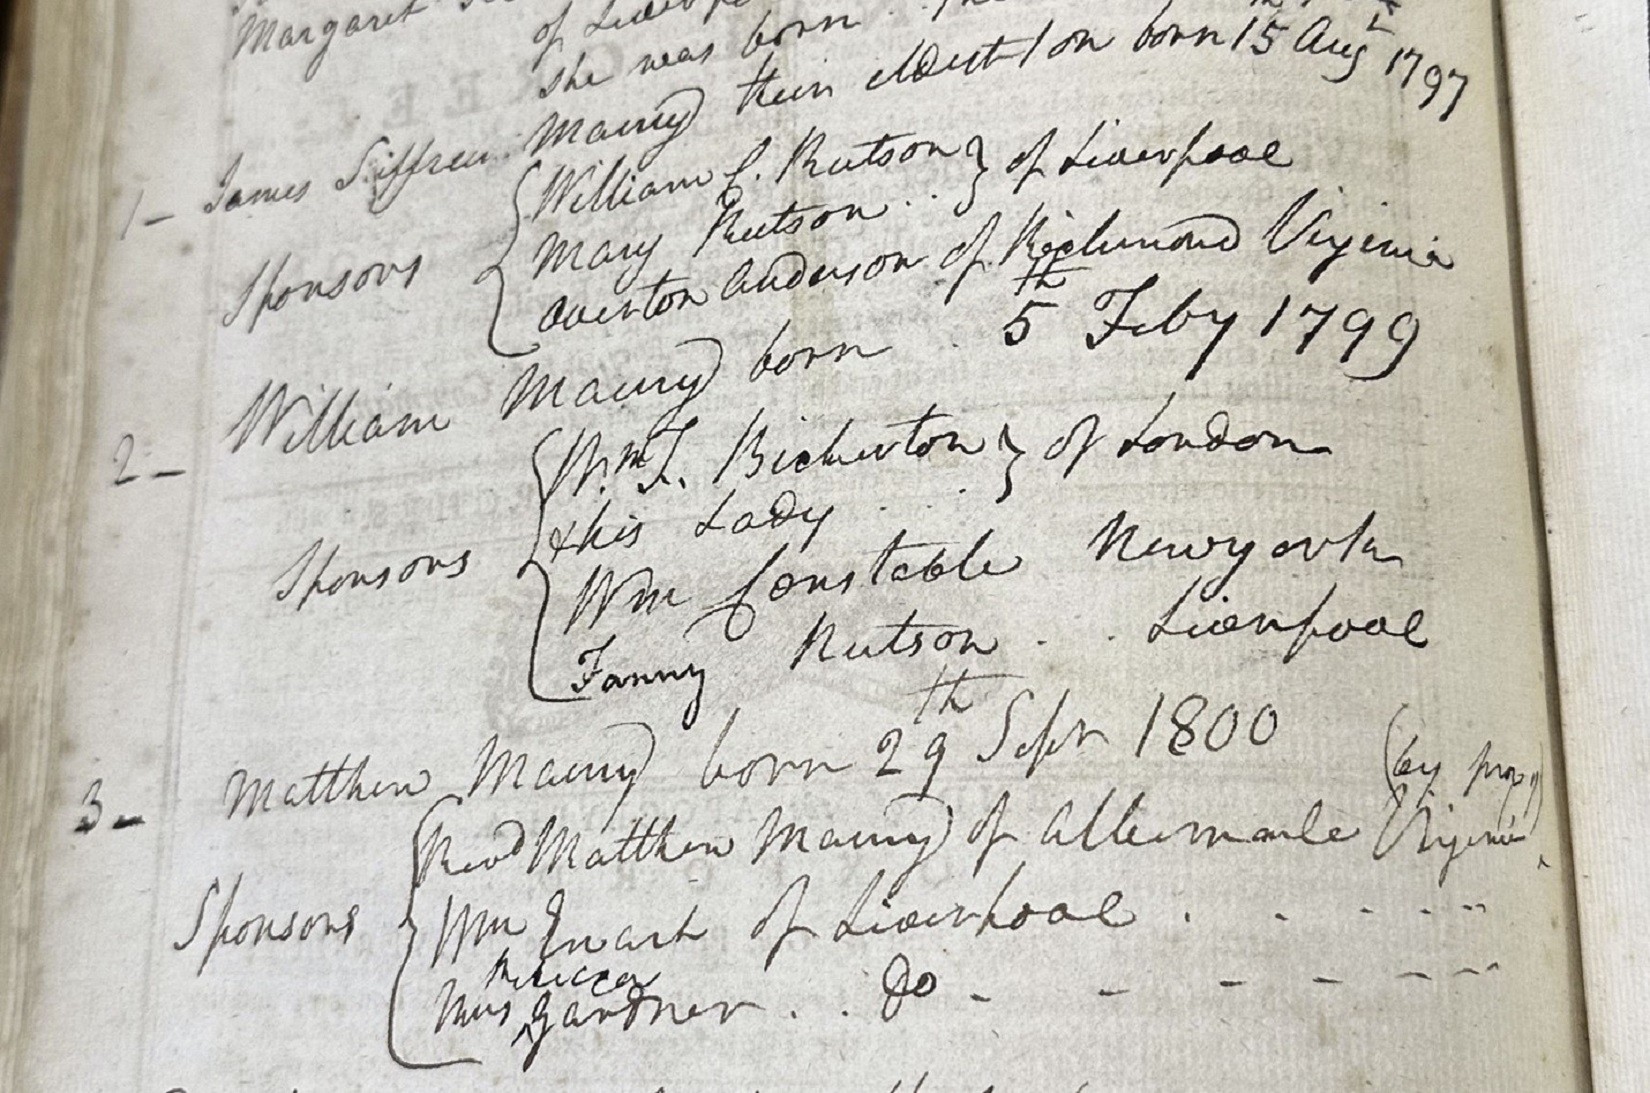 Margaret
of Liverpool
she was born
1- James Siffrein Maury their eldest son born 15 Augt 1797
Sponsors
William C. Rutson } of Liverpool
Mary Rutson . . .
Overton Anderson of Richmond Virginia
2- William Maury born . 5th Feby 1799
Sponsors
Wm L. Bickerton } of London
& his Lady . . .
Wm Constable Newyork
Fanny Rutson . . Liverpool
3- Matthew Maury born 29th Sepr 1800
(by proxy)
Revd Matthew Maury of Albermarle Virginia
Sponsors
Wm of Liverpool . . . . . .
Rebecca
Miss ^ Gardner . . Do - - - - - -